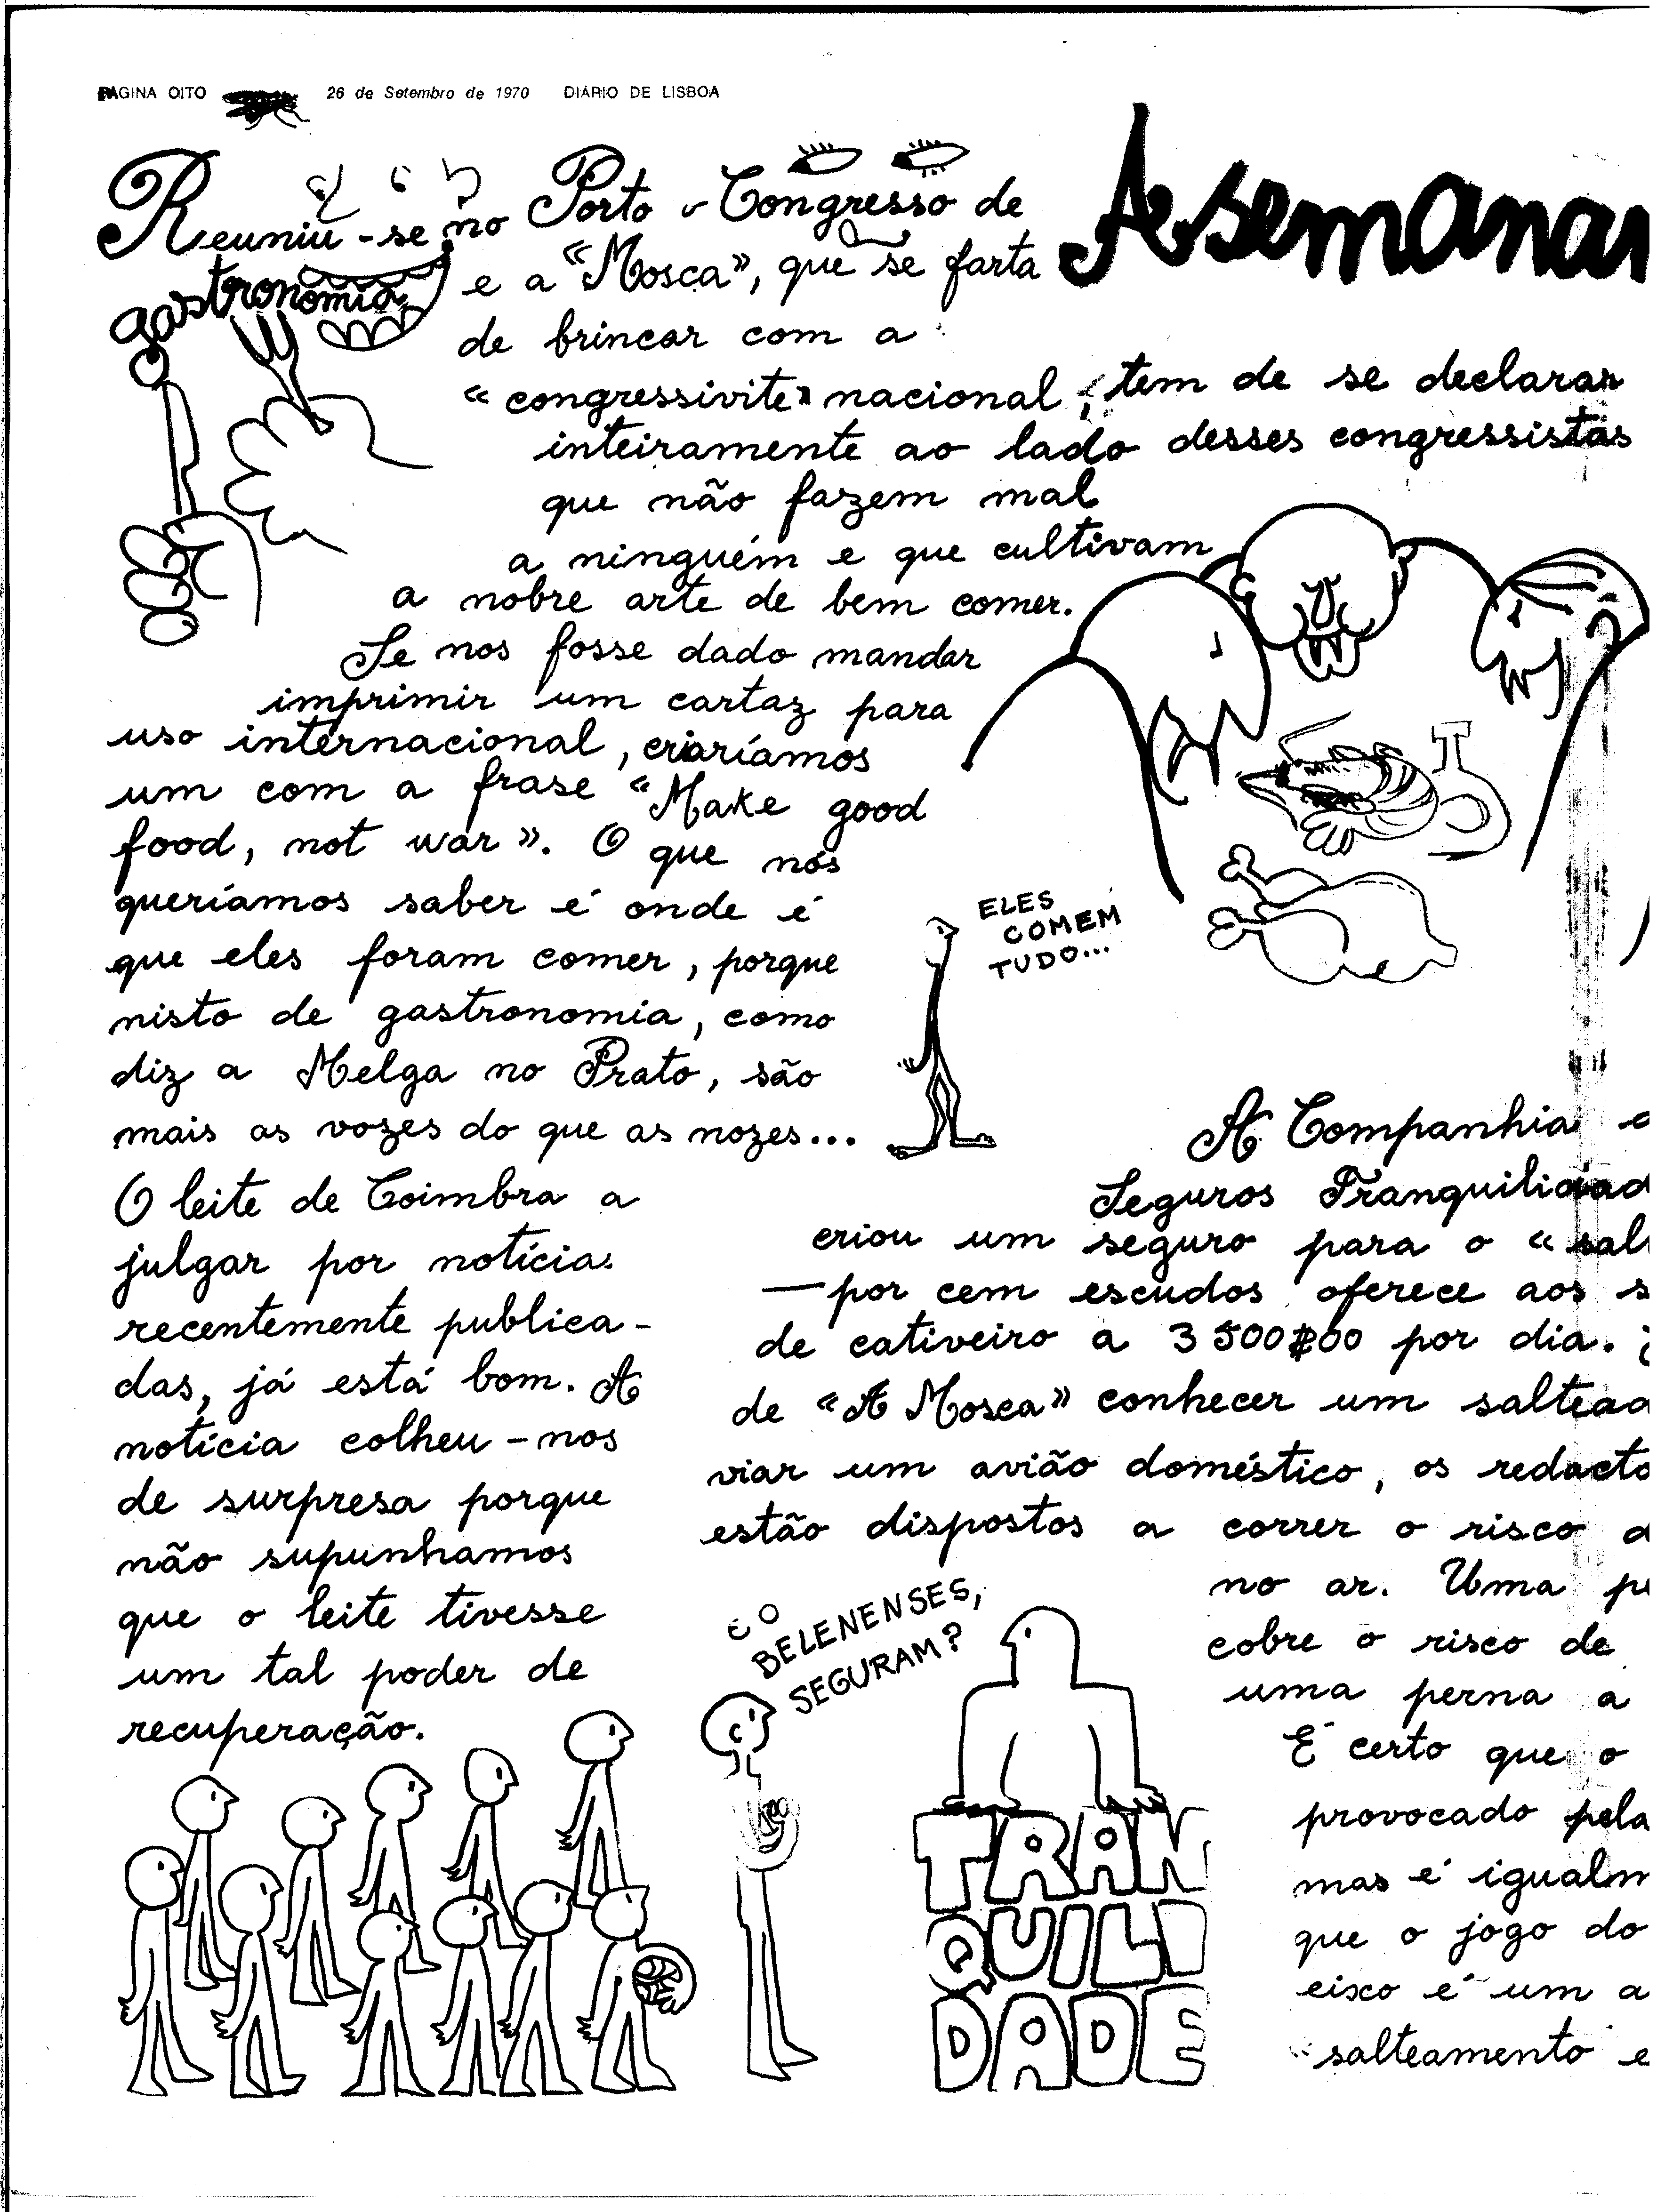 PÁGINA OITO 26 de Setembro de 1970 DIÁRIO DE LISBOA
A semana
Reuniu-se no Porto o Congresso de
gastronomia e a «Mosca», que se farta
de brincar com a
«congressivite» nacional, tem de se declarar
inteiramente ao lado desses congressistas
que não fazem mal
a ninguém e que cultivam
a nobre arte de bem comer.
Se nos fosse dado mandar
imprimir um cartaz para
uso internacional, criaríamos
um com a frase «Make good
food, not war». O que nós
queríamos saber é onde é
que eles foram comer, porque
nisto de gastronomia, como
diz a Melga no Prato, são
mais as vozes do que as nozes...
ELES
COMEM
TUDO...
O leite de Coimbra a
julgar por notícias
recentemente publica-
das, já está bom. A
notícia colheu-nos
de surpresa porque
não supunhamos
que o leite tivesse
um tal poder de
recuperação.
A Companhia
Seguros Tranquilidad
criou um seguro para o «sal
—por cem escudos oferece aos s
de cativeiro a 3500$00 por dia.
de «A Mosca» conhecer um saltead
viar um avião doméstico, os redacto
estão dispostos a correr o risco d
no ar. Uma p
cobre o risco de
uma perna a
É certo que o
provocado pela
mas é igualm
que o jogo do
eixo é um a
salteamento e
E O
BELENENSES,
SEGURAM?
TRAN
QUILI
DADE